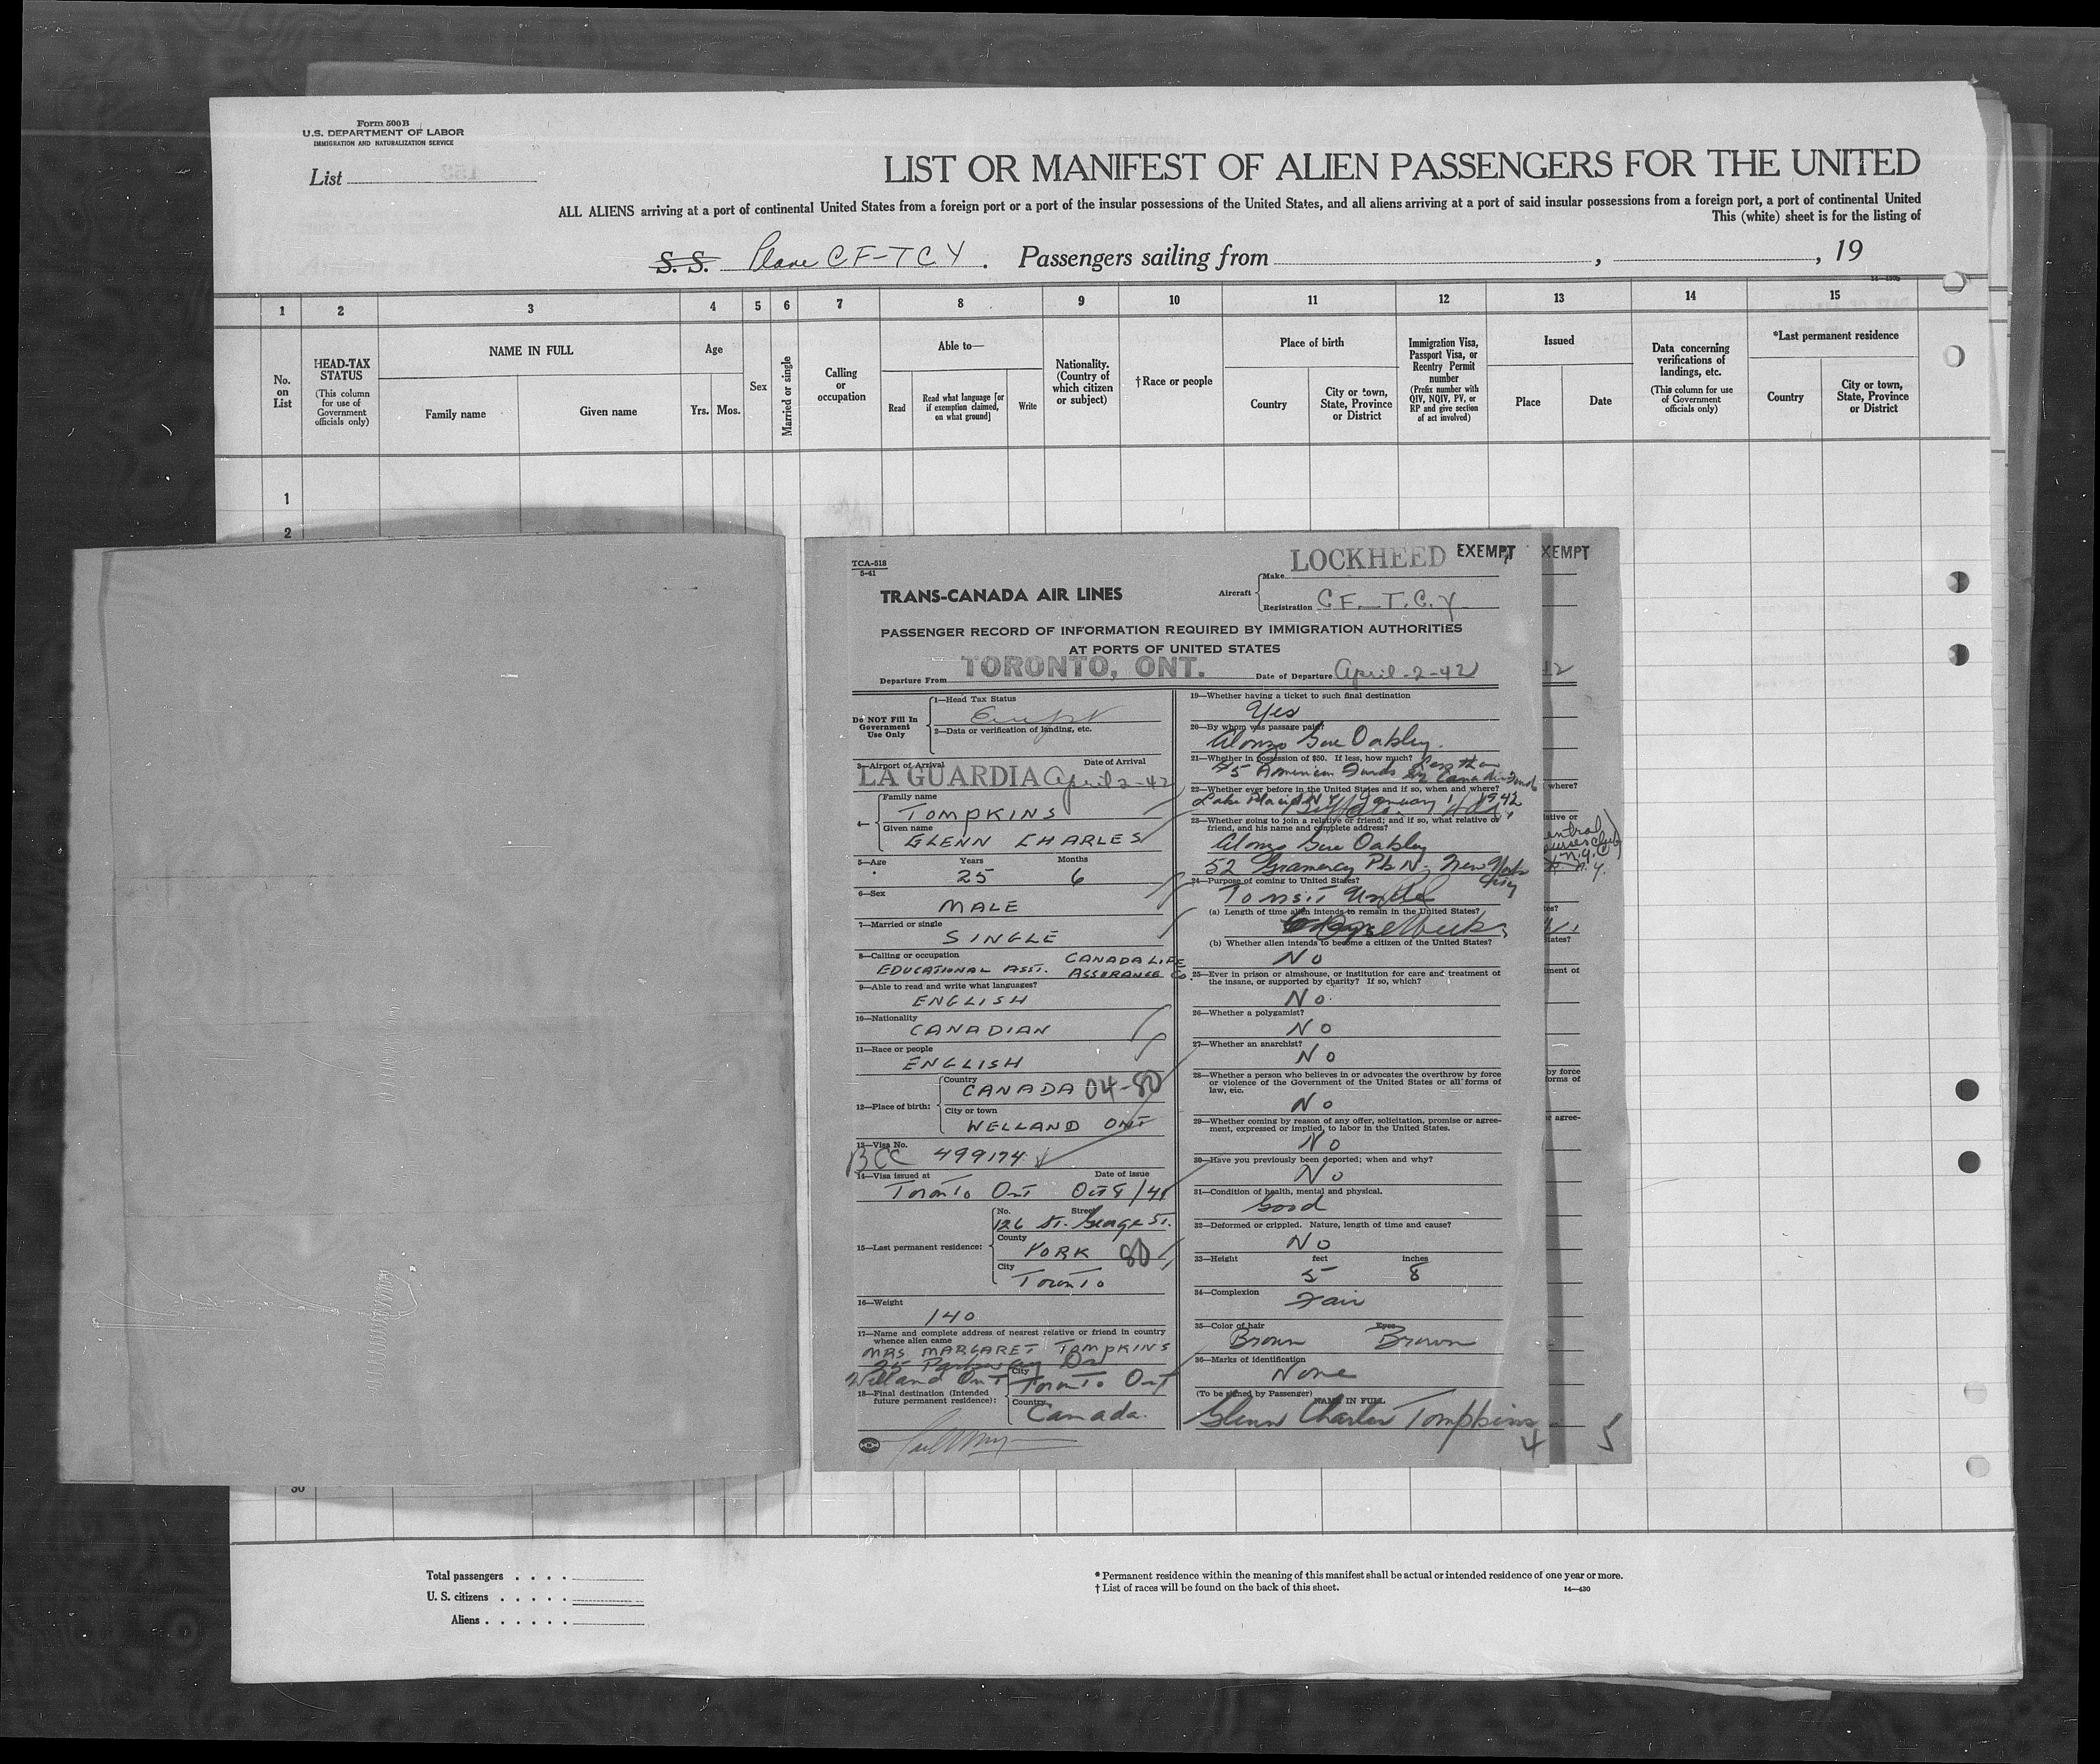 Form 500 B
U.S. DEPARTMENT OF LABOR
IMMIGRATION AND NATURALIZATION SERVICE
List
LIST OR MANIFEST OF ALIEN PASSENGERS FOR THE UNITED
ALL ALIENS arriving at a port of continental United States from a foreign port or a port of the insular possessions of the United States, and all aliens arriving at a port of said insular possessions from a foreign port, a port of continental United
This (white) sheet is for the listing of
S. S. Plane CF-TCY. Passengers sailing from , , 19
1 2 3 4 5 6 7 8 9 10 11 12 13 14 15
No. on List
HEAD-TAX STATUS (This column for use of Government officials only)
NAME IN FULL
Family name
Given name
Age
Yrs. Mos.
Sex
Married or single
Calling or occupation
Able to—
Read
Read what language [or if exemption claimed, on what ground]
Write
Nationality. (Country of which citizen or subject)
†Race or people
Place of birth
Country
City or town, State, Province or District
Immigration Visa, Passport Visa, or Reentry Permit number (Prefix number with QIV, NQIV, PV, or RP and give section of act involved)
Issued
Place
Date
Data concerning verifications of landings, etc. (This column for use of Government officials only)
*Last permanent residence
Country
City or town, State, Province or District
1
2
TCA-518
5-41
TRANS-CANADA AIR LINES
Aircraft
Make LOCKHEED EXEMPT
Registration CF-T.C.Y
XEMPT
PASSENGER RECORD OF INFORMATION REQUIRED BY IMMIGRATION AUTHORITIES
AT PORTS OF UNITED STATES
Departure From TORONTO, ONT. Date of Departure April-2-42
Do NOT Fill In Government Use Only
1—Head Tax Status
Exempt
2—Data or verification of landing, etc.
3—Airport of Arrival Date of Arrival
LA GUARDIA April 2-42
4—
Family name
TOMPKINS
Given name
GLENN CHARLES
5—Age Years Months
25 6
6—Sex
MALE
7—Married or single
SINGLE
8—Calling or occupation CANADA LIFE
EDUCATIONAL ASST. ASSURANCE Co.
9—Able to read and write what languages?
ENGLISH
10—Nationality
CANADIAN
11—Race or people
ENGLISH
12—Place of birth:
Country
CANADA 04-80
City or town
WELLAND ONT
13—Visa No.
BCC 499174
14—Visa issued at Date of issue
Toronto Ont Oct 8/41
15—Last permanent residence:
No. Street
126 St. George St.
County
YORK 80
City
Toronto
16—Weight
140
17—Name and complete address of nearest relative or friend in country whence alien came
MRS. MARGARET TOMPKINS
25 Parkway Dr
Welland Ont
18—Final destination (Intended future permanent residence):
City
Toronto Ont
Country
Canada.
19—Whether having a ticket to such final destination
Yes
20—By whom was passage paid?
Alonzo Gore Oakley.
21—Whether in possession of $50. If less, how much?
American Funds
22—Whether ever before in the United States and if so, when and where?
Lake Placid N Y January 1942
23—Whether going to join a relative or friend; and if so, what relative or friend, and his name and complete address?
Alonzo Gore Oakley
52 Gramercy Pk N. New York City
24—Purpose of coming to United States?
To visit Uncle
(a) Length of time alien intends to remain in the United States?
(b) Whether alien intends to become a citizen of the United States?
No
25—Ever in prison or almshouse, or institution for care and treatment of the insane, or supported by charity? If so, which?
No.
26—Whether a polygamist?
No
27—Whether an anarchist?
No
28—Whether a person who believes in or advocates the overthrow by force or violence of the Government of the United States or all forms of law, etc.
No
29—Whether coming by reason of any offer, solicitation, promise or agreement, expressed or implied, to labor in the United States.
No
30—Have you previously been deported; when and why?
No
31—Condition of health, mental and physical.
Good
32—Deformed or crippled. Nature, length of time and cause?
No
33—Height feet inches
5 8
34—Complexion
Fair
35—Color of hair Eyes
Brown Brown
36—Marks of identification
None
(To be signed by Passenger)
NAME IN FULL
Glenn Charles Tompkins
4
5
30
Total passengers
U. S. citizens
Aliens
* Permanent residence within the meaning of this manifest shall be actual or intended residence of one year or more.
† List of races will be found on the back of this sheet. 14—430